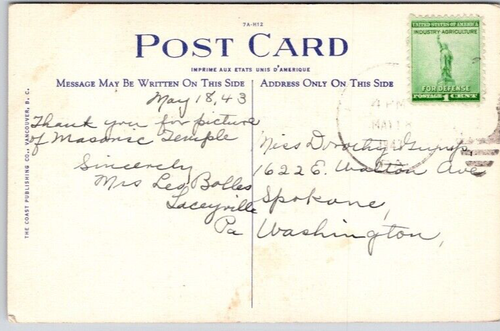 7A-H12
POST CARD
IMPRIME AUX ETATS UNIS D'AMERIQUE
MESSAGE MAY BE WRITTEN ON THIS SIDE
ADDRESS ONLY ON THIS SIDE
May 18, 43
Thank you for picture
of Masonic Temple
Sincerely
Mrs Leo Bolles
Laceyville
Pa
Miss Dorothy
1622 E. Walton Ave
Spokane,
Washington,
THE COAST PUBLISHING CO., VANCOUVER, B. C.
UNITED STATES OF AMERICA
INDUSTRY-AGRICULTURE
FOR DEFENSE
POSTAGE 1 CENT
4 PM
MAY 18